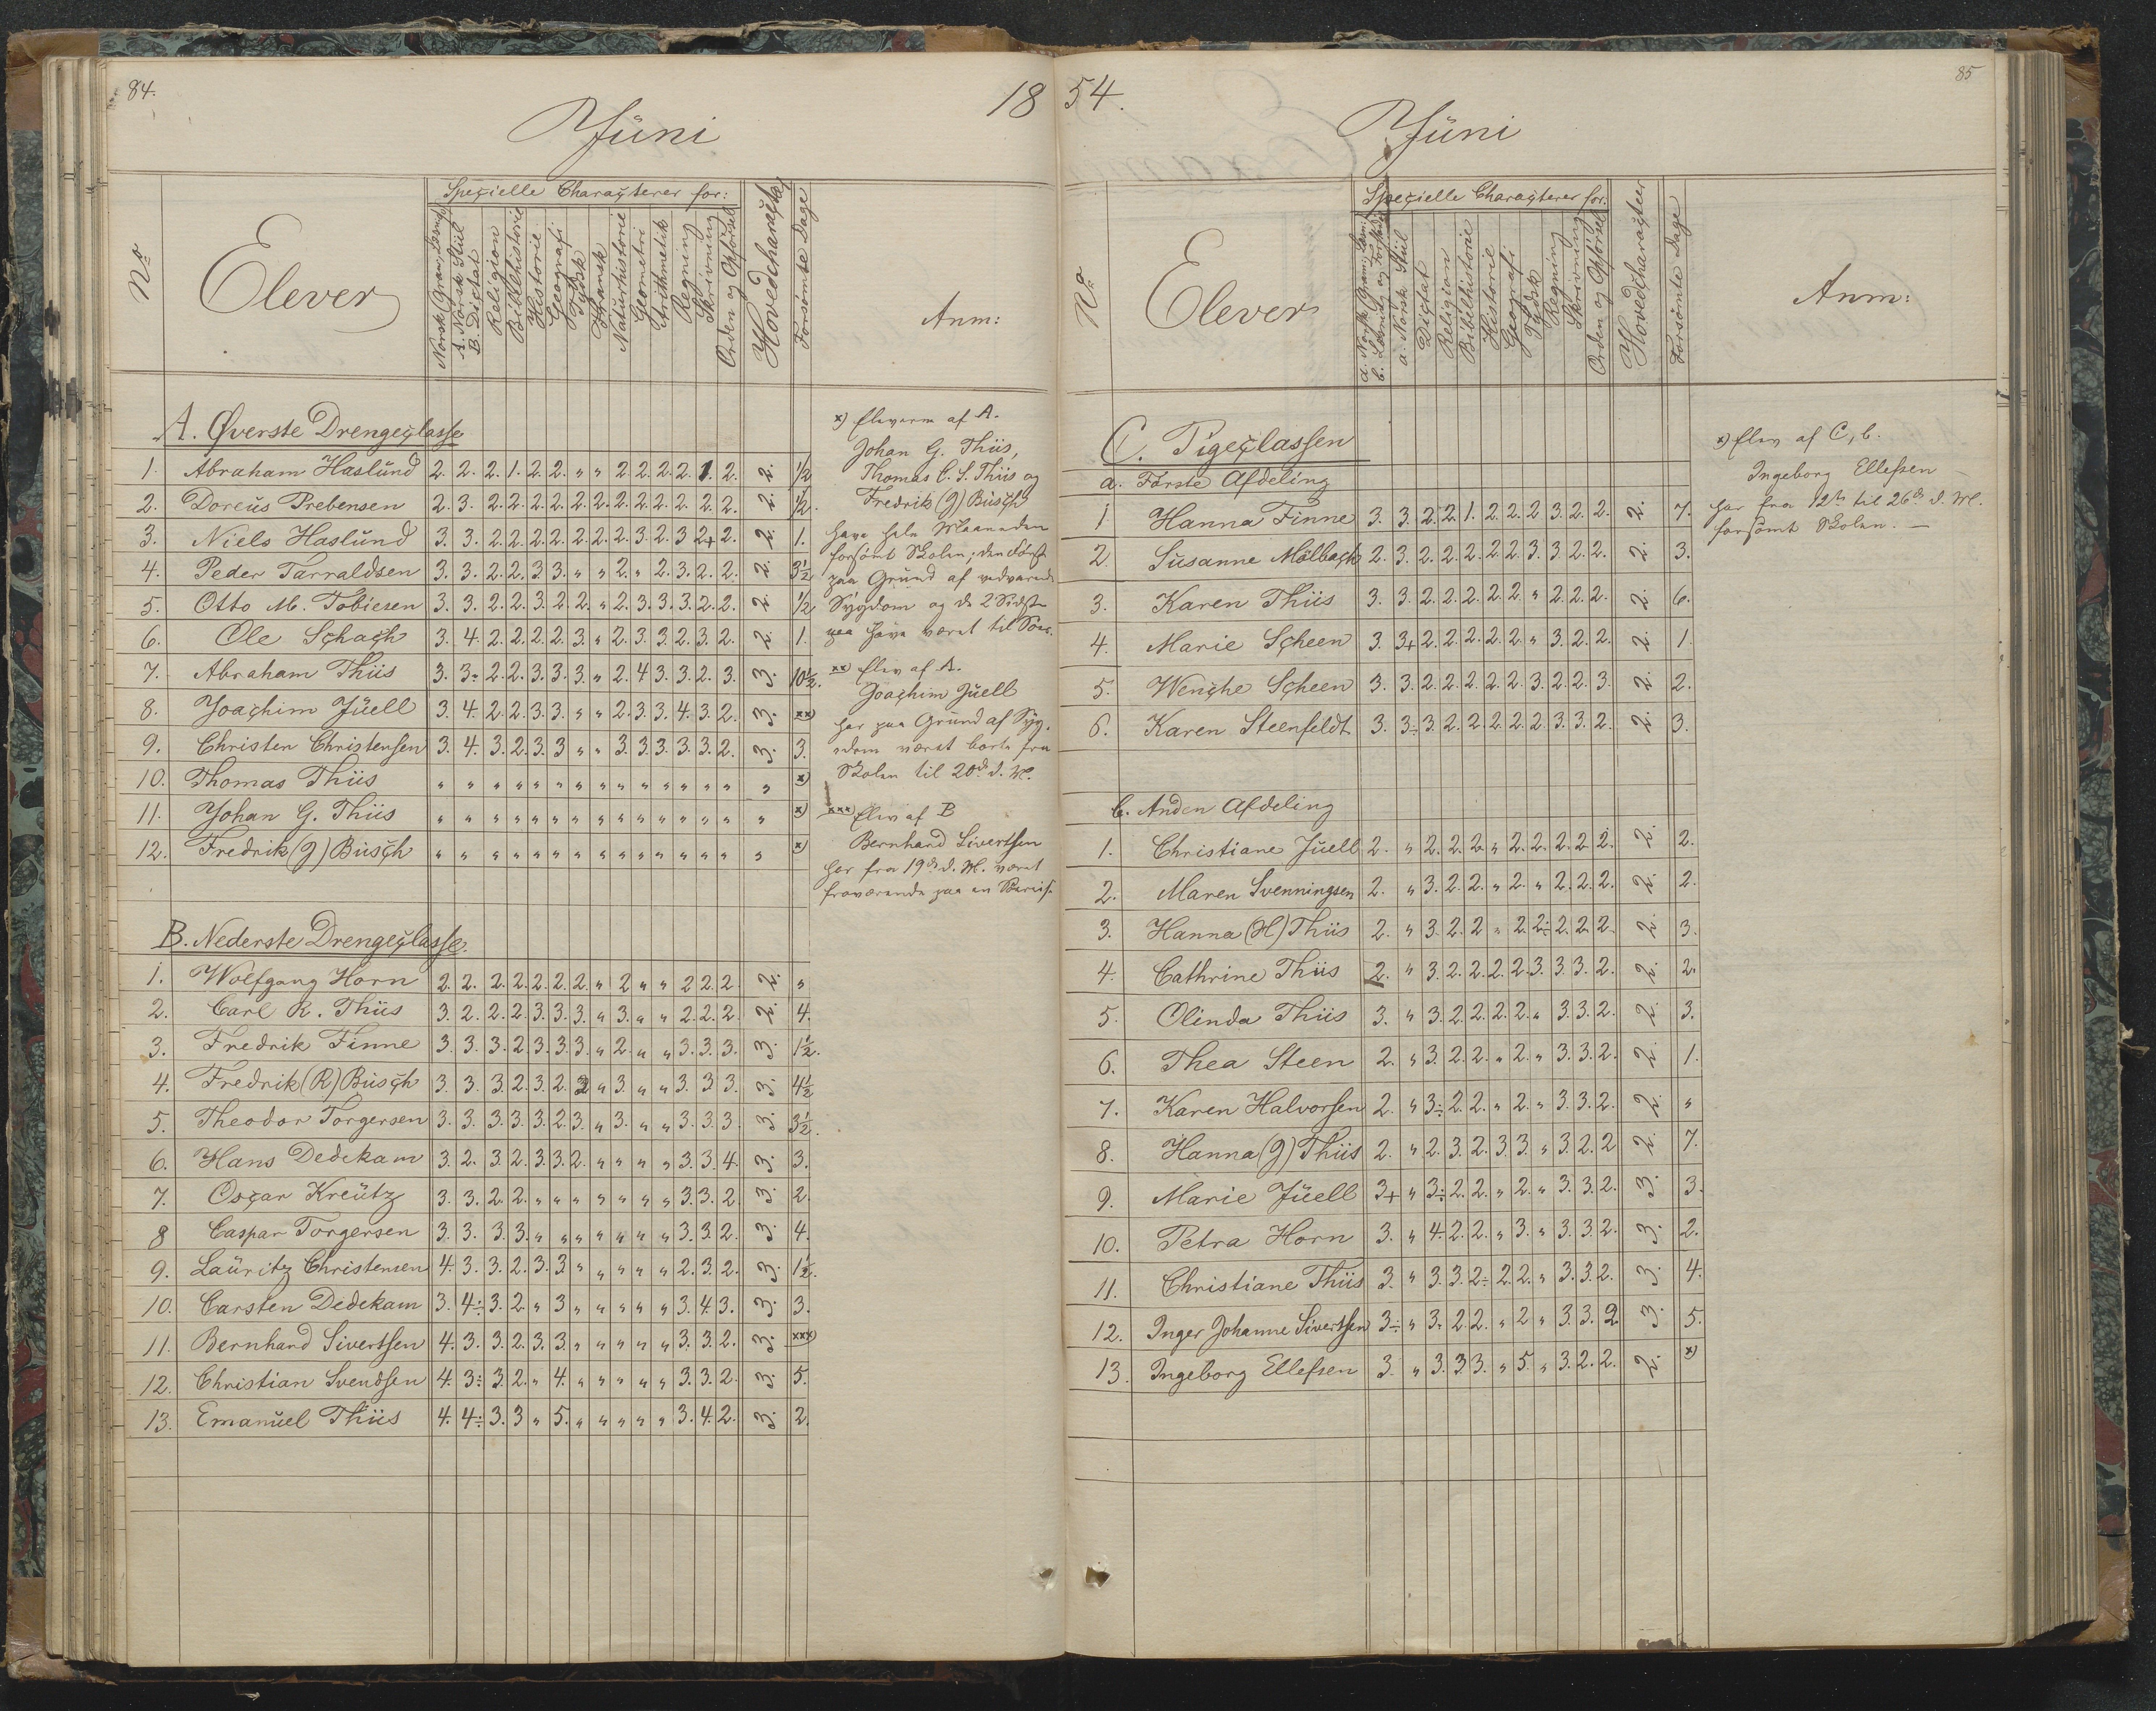 84.
18
Juni
No
Elever
Specielle Characterer for:
Norsk Gram., Læsn.
A. Norsk Stiil
B. Dictat
Religion
Bibelhistorie
Historie
Geografi
Tydsk
Fransk
Naturhistorie
Geometri
Arithmetik
Regning
Skrivning
Orden og Opførsel
Hovedcharakter
Forsømte Dage
Anm:
A. Øverste Drengeclasse
1. Abraham Haslund 2. 2. 2. 1. 2. 2. " " 2 2. 2. 2. 1. 2. 2. 1/2
2. Dorcus Prebensen 2. 3. 2. 2. 2. 2. 2. 2. 2. 2. 2. 2. 2. 2. 2. 1/2.
3. Niels Haslund 3. 3. 2. 2. 2. 2. 2. 2. 2. 3. 2. 3 2+ 2. 2. 1.
4. Peder Tarraldsen 3. 3. 2. 2. 3. 3. " " 2. " 2. 3. 2. 2. 2. 3 1/2
5. Otto M. Tobiesen 3. 3. 2. 2. 3. 2. 2. " 2. 3. 3. 3. 2. 2. 2. 1/2
6. Ole Schach 3. 4. 2. 2. 2. 2. 3. " 2. 3. 3. 2. 3. 2. 2. 1.
7. Abraham Thiis 3. 3÷ 2. 2. 3. 3. 3. " 2. 4 3. 3. 2. 3. 3. 10 1/2.
8. Joachim Juell 3. 4. 2. 2. 3. 3. " " 2. 3. 3. 4. 3. 2. 3. xx)
9. Christen Christensen 3. 4. 3. 2. 3. 3 " " 3. 3. 3. 3. 3. 2. 3. 3.
10. Thomas Thiis " " " " " " " " " " " " " " " x)
11. Johan G. Thiis " " " " " " " " " " " " " " " x)
12. Fredrik (J) Busch " " " " " " " " " " " " " " " x)
x) Eleverne af A.
Johan G. Thiis,
Thomas C. S. Thiis og
Fredrik (J) Busch
have hele Maaneden
forsømt Skolen; den første
paa Grund af vedvarende
Sygdom og de 2 Sidste
paa have været til Søes.
xx) Elev af A.
Joachim Juell
har paa Grund af Syg-
dom været borte fra
Skolen til 20de d. M.
xxx) Elev af B
Bernhard Sivertsen
har fra 19de d. M. været
fraværende paa en
B. Nederste Drengeclasse.
1. Wolfgang Horn 2. 2. 2. 2. 2. 2. 2. " 2 " " 2 2. 2 2. "
2. Carl R. Thiis 3. 2. 2. 2. 3. 3. 3. " 3. " " 2. 2. 2. 2. 4.
3. Fredrik Finne 3. 3. 3. 2. 3. 3. 3. " 2. " " 3. 3. 3. 3. 1 1/2.
4. Fredrik (R) Busch 3. 3. 3 2. 3. 2. 3 " 3. " " 3. 3 3. 3. 4 1/2
5. Theodor Torgersen 3. 3. 3. 3. 3. 2. 3. " 3. " " 3. 3. 3. 3. 3 1/2.
6. Hans Dedekam 3. 2. 3. 2. 3. 3. 2. " " " " 3. 3. 4 3. 3.
7. Oscar Kreutz 3. 3. 2. 2. " " " " " " " 3. 3. 2. 3. 2.
8 Caspar Torgersen 3. 3. 3. 3. " " " " " " " 3. 3. 2. 3. 4.
9. Lauritz Christensen 4. 3. 3. 2. 3. 3 " " " " " 2. 3. 2. 3. 1 1/2.
10. Carsten Dedekam 3. 4÷ 3. 2. " 3 " " " " " 3. 4. 3. 3. 3.
11. Bernhard Sivertsen 4. 3. 3. 2. 3. 3. " " " " " 3. 3. 2. 3. xxx)
12. Christian Svendsen 4. 3÷ 3. 2. " 4. " " " " " 3. 3. 2. 3. 5.
13. Emanuel Thiis 4. 4÷ 3. 3 " 5. " " " " " 3. 4. 2. 3. 2.
54.
85
Juni
No
Elever
Specielle Characterer for:
a. Norsk Gram., Læsn.
b. Læsning og Forkl.
a. Norsk Stiil
Dictat
Religion
Bibelhistorie
Historie
Geografi
Tydsk
Regning
Skrivning
Orden og Opførsel
Hovedcharacter
Forsømte Dage
Anm:
C. Pigeclassen
a. Første Afdeling
1 Hanna Finne 3. 3. 2. 2. 1. 2. 2. 2 3. 2. 2. 2. 7.
2. Susanne Mölbach 2. 3. 2. 2. 2. 2. 2. 3. 3. 2. 2. 2. 3.
3. Karen Thiis 3. 3. 2. 2. 2. 2. 2. " 2. 2. 2. 2. 6.
4. Marie Scheen 3. 3+ 2. 2. 2. 2. 2. " 3. 2. 2. 2. 1.
5. Wenche Scheen 3. 3. 2. 2. 2. 2. 2. 3. 2. 2. 3. 2. 2.
6. Karen Steenfeldt 3. 3÷ 3. 2. 2. 2. 2. 2. 3. 3. 2. 2. 3.
x) Elev af C, b.
Ingeborg Ellefsen
har fra 12te til 26de d. M.
forsømt Skolen. —
b. Anden Afdeling
1. Christiane Juell 2. " 2. 2. 2. " 2. 2. 2. 2. 2. 2. 2.
2. Maren Svenningsen 2. " 3. 2. 2. " 2. " 2. 2. 2. 2. 2.
3. Hanna (H) Thiis 2. " 3. 2. 2 " 2. 2÷ 2. 2. 2. 2. 3.
4. Cathrine Thiis 2. " 3. 2. 2. 2. 2. 3. 3. 3. 2. 2. 2.
5. Olinda Thiis 3. " 3. 2. 2. 2. 2. " 3. 3. 2. 2. 3.
6. Thea Steen 2. " 3. 2. 2. " 2. " 3. 3. 2. 2. 1.
7. Karen Halvorsen 2. " 3÷ 2. 2. " 2. " 3. 3. 2. 2. "
8. Hanna (J) Thiis 2. " 2. 3. 2. 3. 3. " 3. 2. 2 2. 7.
9. Marie Juell 3+ " 3÷ 2. 2. " 2. " 3. 3. 2. 3. 3.
10. Petra Horn 3. " 4. 2. 2. " 3. " 3. 3. 2. 3. 2.
11. Christiane Thiis 3. " 3. 3. 2÷ 2. 2. " 3. 3. 2. 3. 4.
12. Inger Johanne Sivertsen 3÷ " 3. 2. 2. " 2 " 3. 3. 2 3. 5.
13. Ingeborg Ellefsen 3. " 3. 3. 3. " 5. " 3. 2. 2. 2. x)